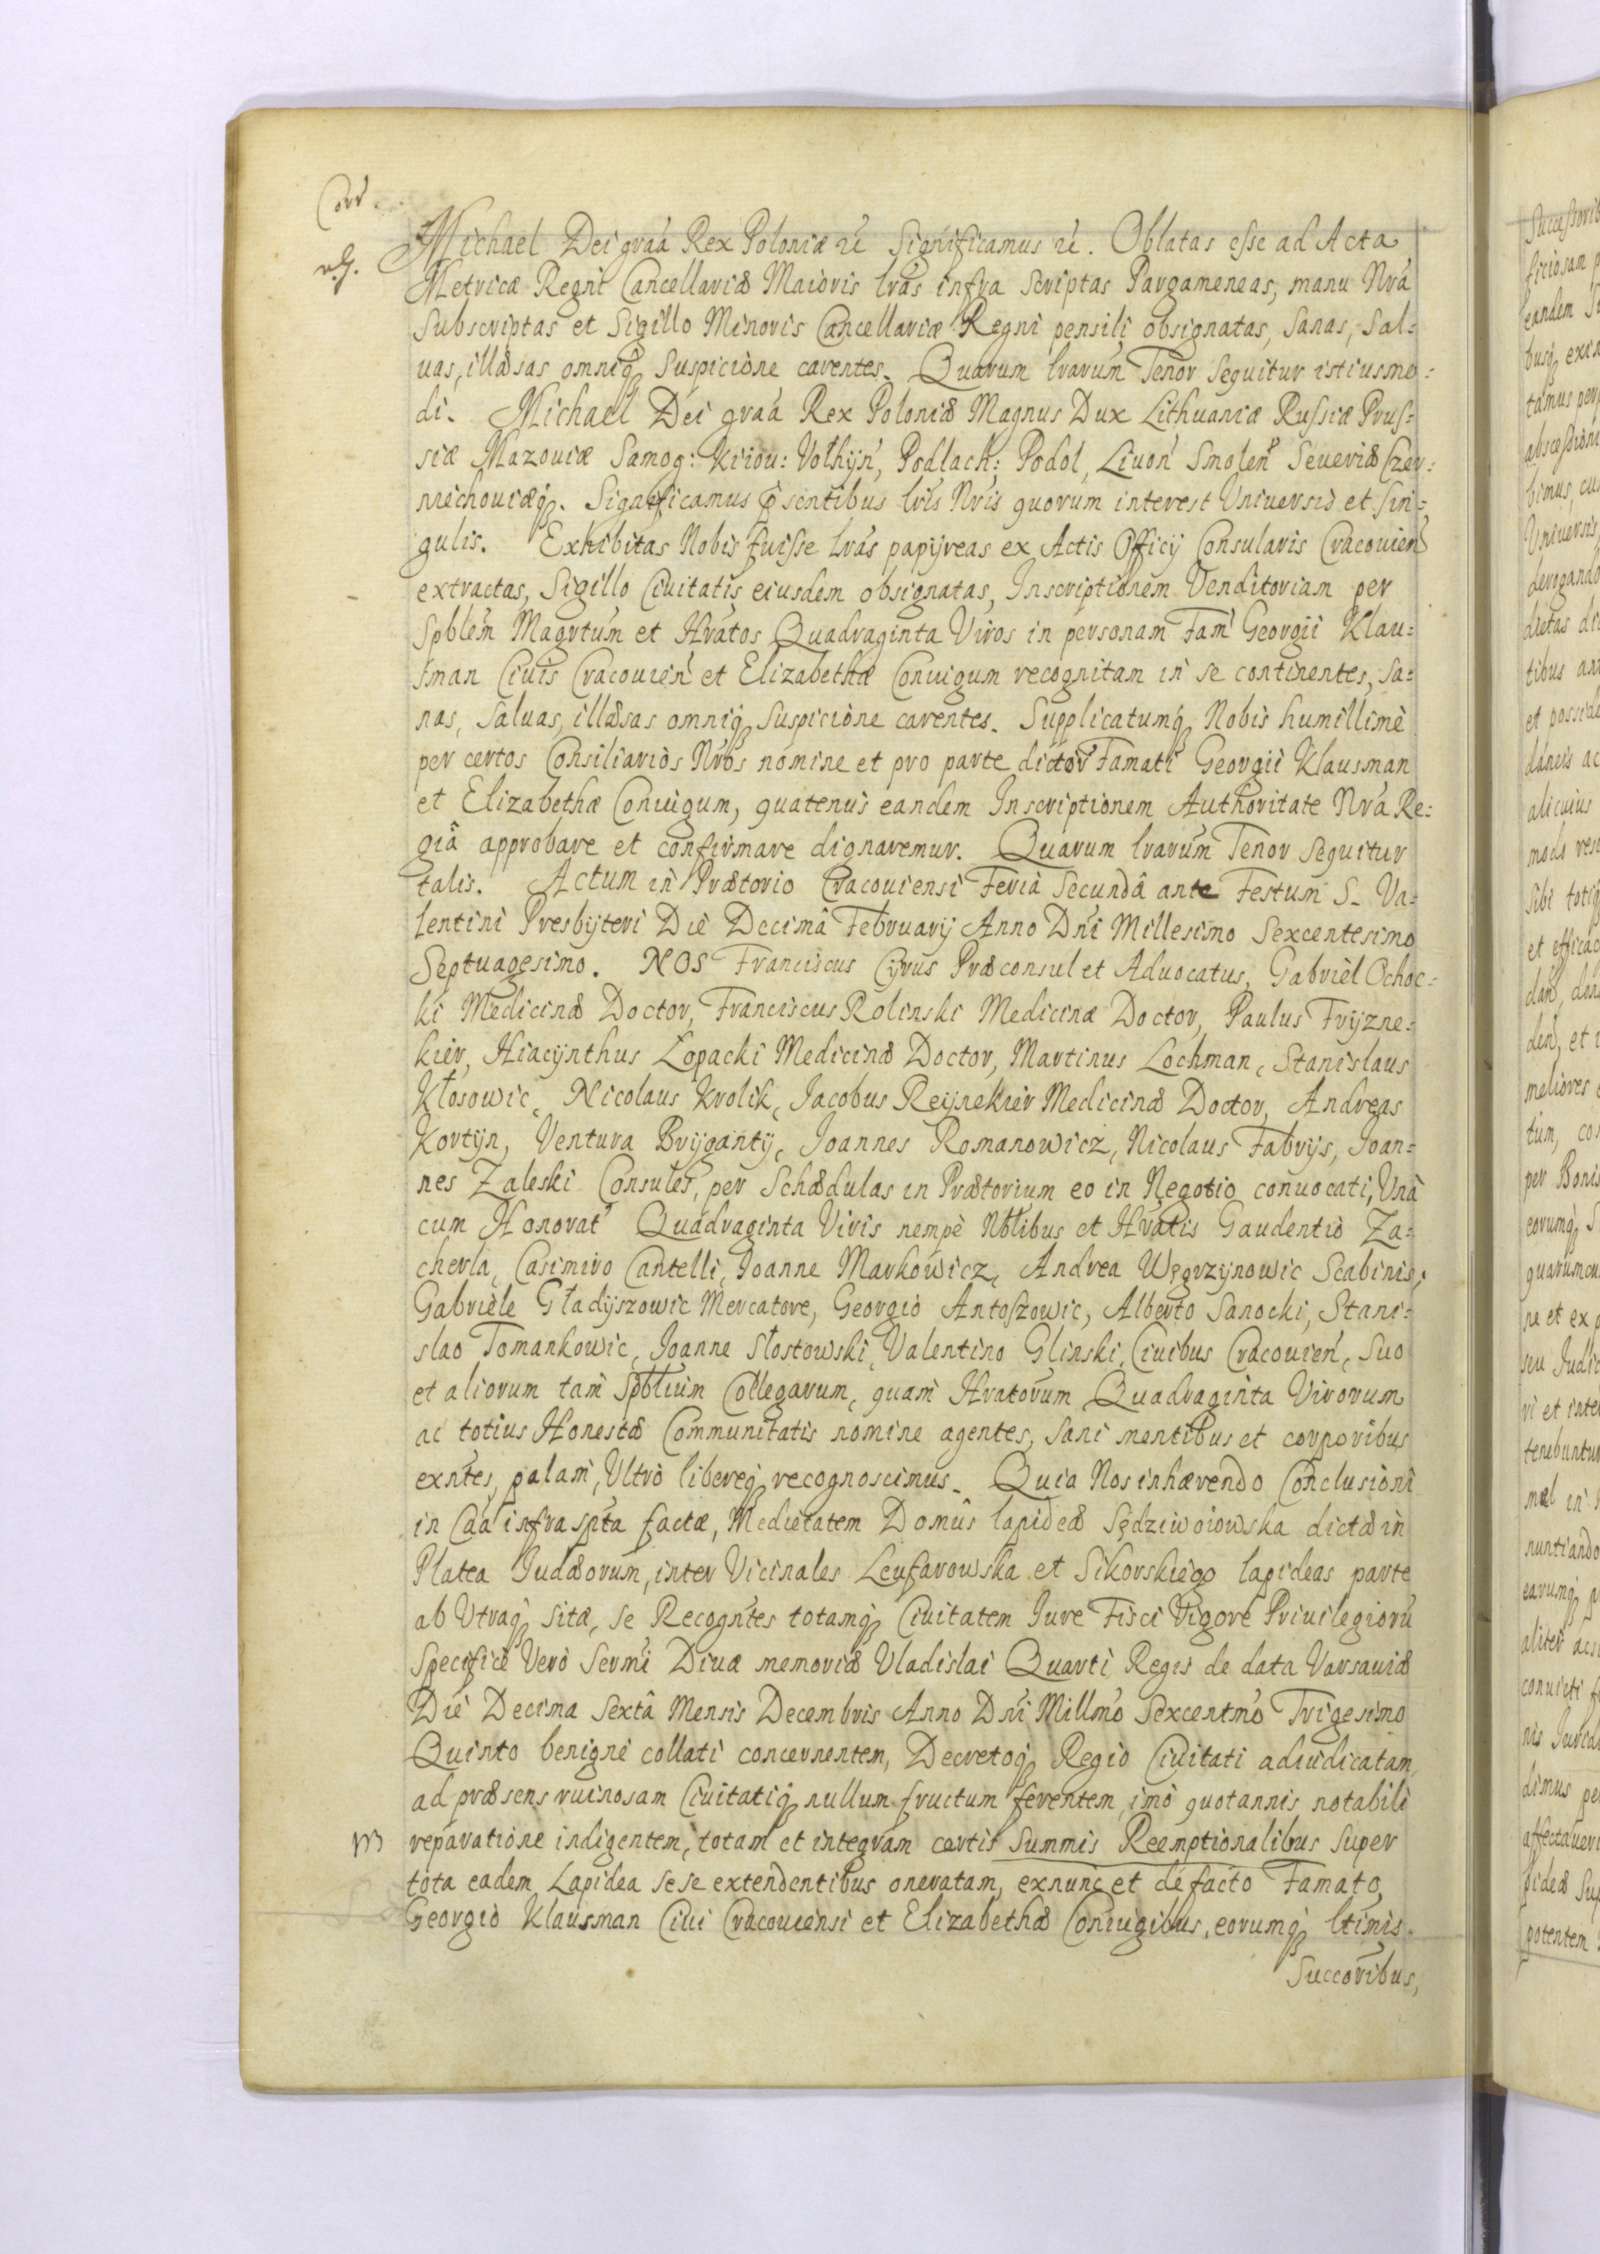 Michael Dei graa Rex Poloniæ &c Significamus &c. Oblatas esse ad Acta
Metricæ Regni Cancellariæ Maioris lras infra Scriptas Pargameneas, manu Nra
Subscriptas et Sigillo Minoris Cancellariæ Regni pensili obsignatas, Sanas, Sal:
uas, illæsas omniq Suspicione carentes. Quarum lrarum Tenor Sequitur istiusmo:
di. Michael Dei graa Rex Poloniæ Magnus Dux Lithuaniæ Russiæ Prus:
siæ Mazouiæ Samog: Kiiou: Vołhyn, Podlach: Podol, Liuon Smolen Seueriæ Czer:
niechouiæq. Significamus psentibus lris Nris quorum interest Uniuersis et Sin:
gulis. Exhibitas Nobis fuisse lras papyreas ex Actis Officÿ Consularis Cracouien
extractas, Sigillo Ciuitatis eiusdem obsignatas, Inscriptionem Venditoriam per
Spblem Magrtum et Hratos Quadraginta Viros in personam Fam Georgii Klau:
sman Ciuis Cracouien et Elizabethæ Coniugum recognitam in se continentes, sa:
nas, Saluas, illæsas omniq Suspicione carentes. Supplicatumq Nobis humillimè
per certos Consiliarios Nros nomine et pro parte dictor Famati Georgii Klausman
et Elizabethæ Coniugum, quatenus eandem Inscriptionem Authoritate Nra Re:
giâ approbare et confirmare dignaremur. Quarum lrarum Tenor Sequitur
talis. Actum in Prætorio Cracouiensi Feriâ Secundâ ante Festum S. Va:
lentini Presbyteri Die Decimâ Februarÿ Anno Dni Millesimo Sexcentesimo
Septuagesimo. NOS Franciscus Cyrus Præconsul et Aduocatus, Gabriel Ochoc:
ki Medicinæ Doctor, Franciscus Rolinski Medicinæ Doctor, Paulus Fryzne:
kier, Hiacynthus Łopacki Medicinæ Doctor, Martinus Lochman, Stanislaus
Kłosowic, Nicolaus Krolik, Jacobus Reynekier Medicinæ Doctor, Andreas
Kortyn, Ventura Bryganty, Joannes Romanowicz, Nicolaus Fabrys, Joan:
nes Zaleski Consules, per Schædulas in Prætorium eo in Negotio conuocati, Unâ
cum Honorat Quadraginta Viris nempè Nblibus et Hratis Gaudentio Za:
cherla, Casimiro Cantelli, Joanne Markowicz, Andrea Węgrzynowic Scabinis,
Gabriele Gładyszowic Mercatore, Georgio Antoszowic, Alberto Sanocki, Stani:
slao Tomankowic, Joanne Słostowski, Valentino Glinski, Ciuibus Cracouien, Suo
et aliorum tam Spblium Collegarum, quam Hratorum Quadraginta Virorum
ac totius Honestæ Communitatis nomine agentes, Sani mentibus et corporibus
exntes, palam, Ultrò libereq recognoscimus. Quia Nos inhærendo Conclusioni
in Caa infra spta factæ, Medietatem Domûs lapideæ Sędziwoiowska dictæ in
Platea Judæorum, inter Vicinales Leufarowska et Sikorskiego lapideas parte
ab Utraq sitæ, se Recogntes totamq Ciuitatem Jure Fisci Vigore Priuilegioru
Specificè Verò Sermi Diuæ memoriæ Vladislai Quarti Regis de data Varsauiæ
Die Decima Sextâ Mensis Decembris Anno Dni Millmo Sexcentmo Trigesimo
Quinto benignè collati concernentem, Decretoq Regio Ciuitati adiudicatam,
ad præsens ruinosam Ciuitatiq nullum fructum ferentem, imò quotannis notabili
reparatione indigentem, totam et integram certis Summis Reemptionalibus Super
tota eadem Lapidea sese extendentibus oneratam, exnunc et de facto Famato
Georgio Klausman Ciui Cracouiensi et Elizabethæ Coniugibus, eorumq ltimis
Succoribus,